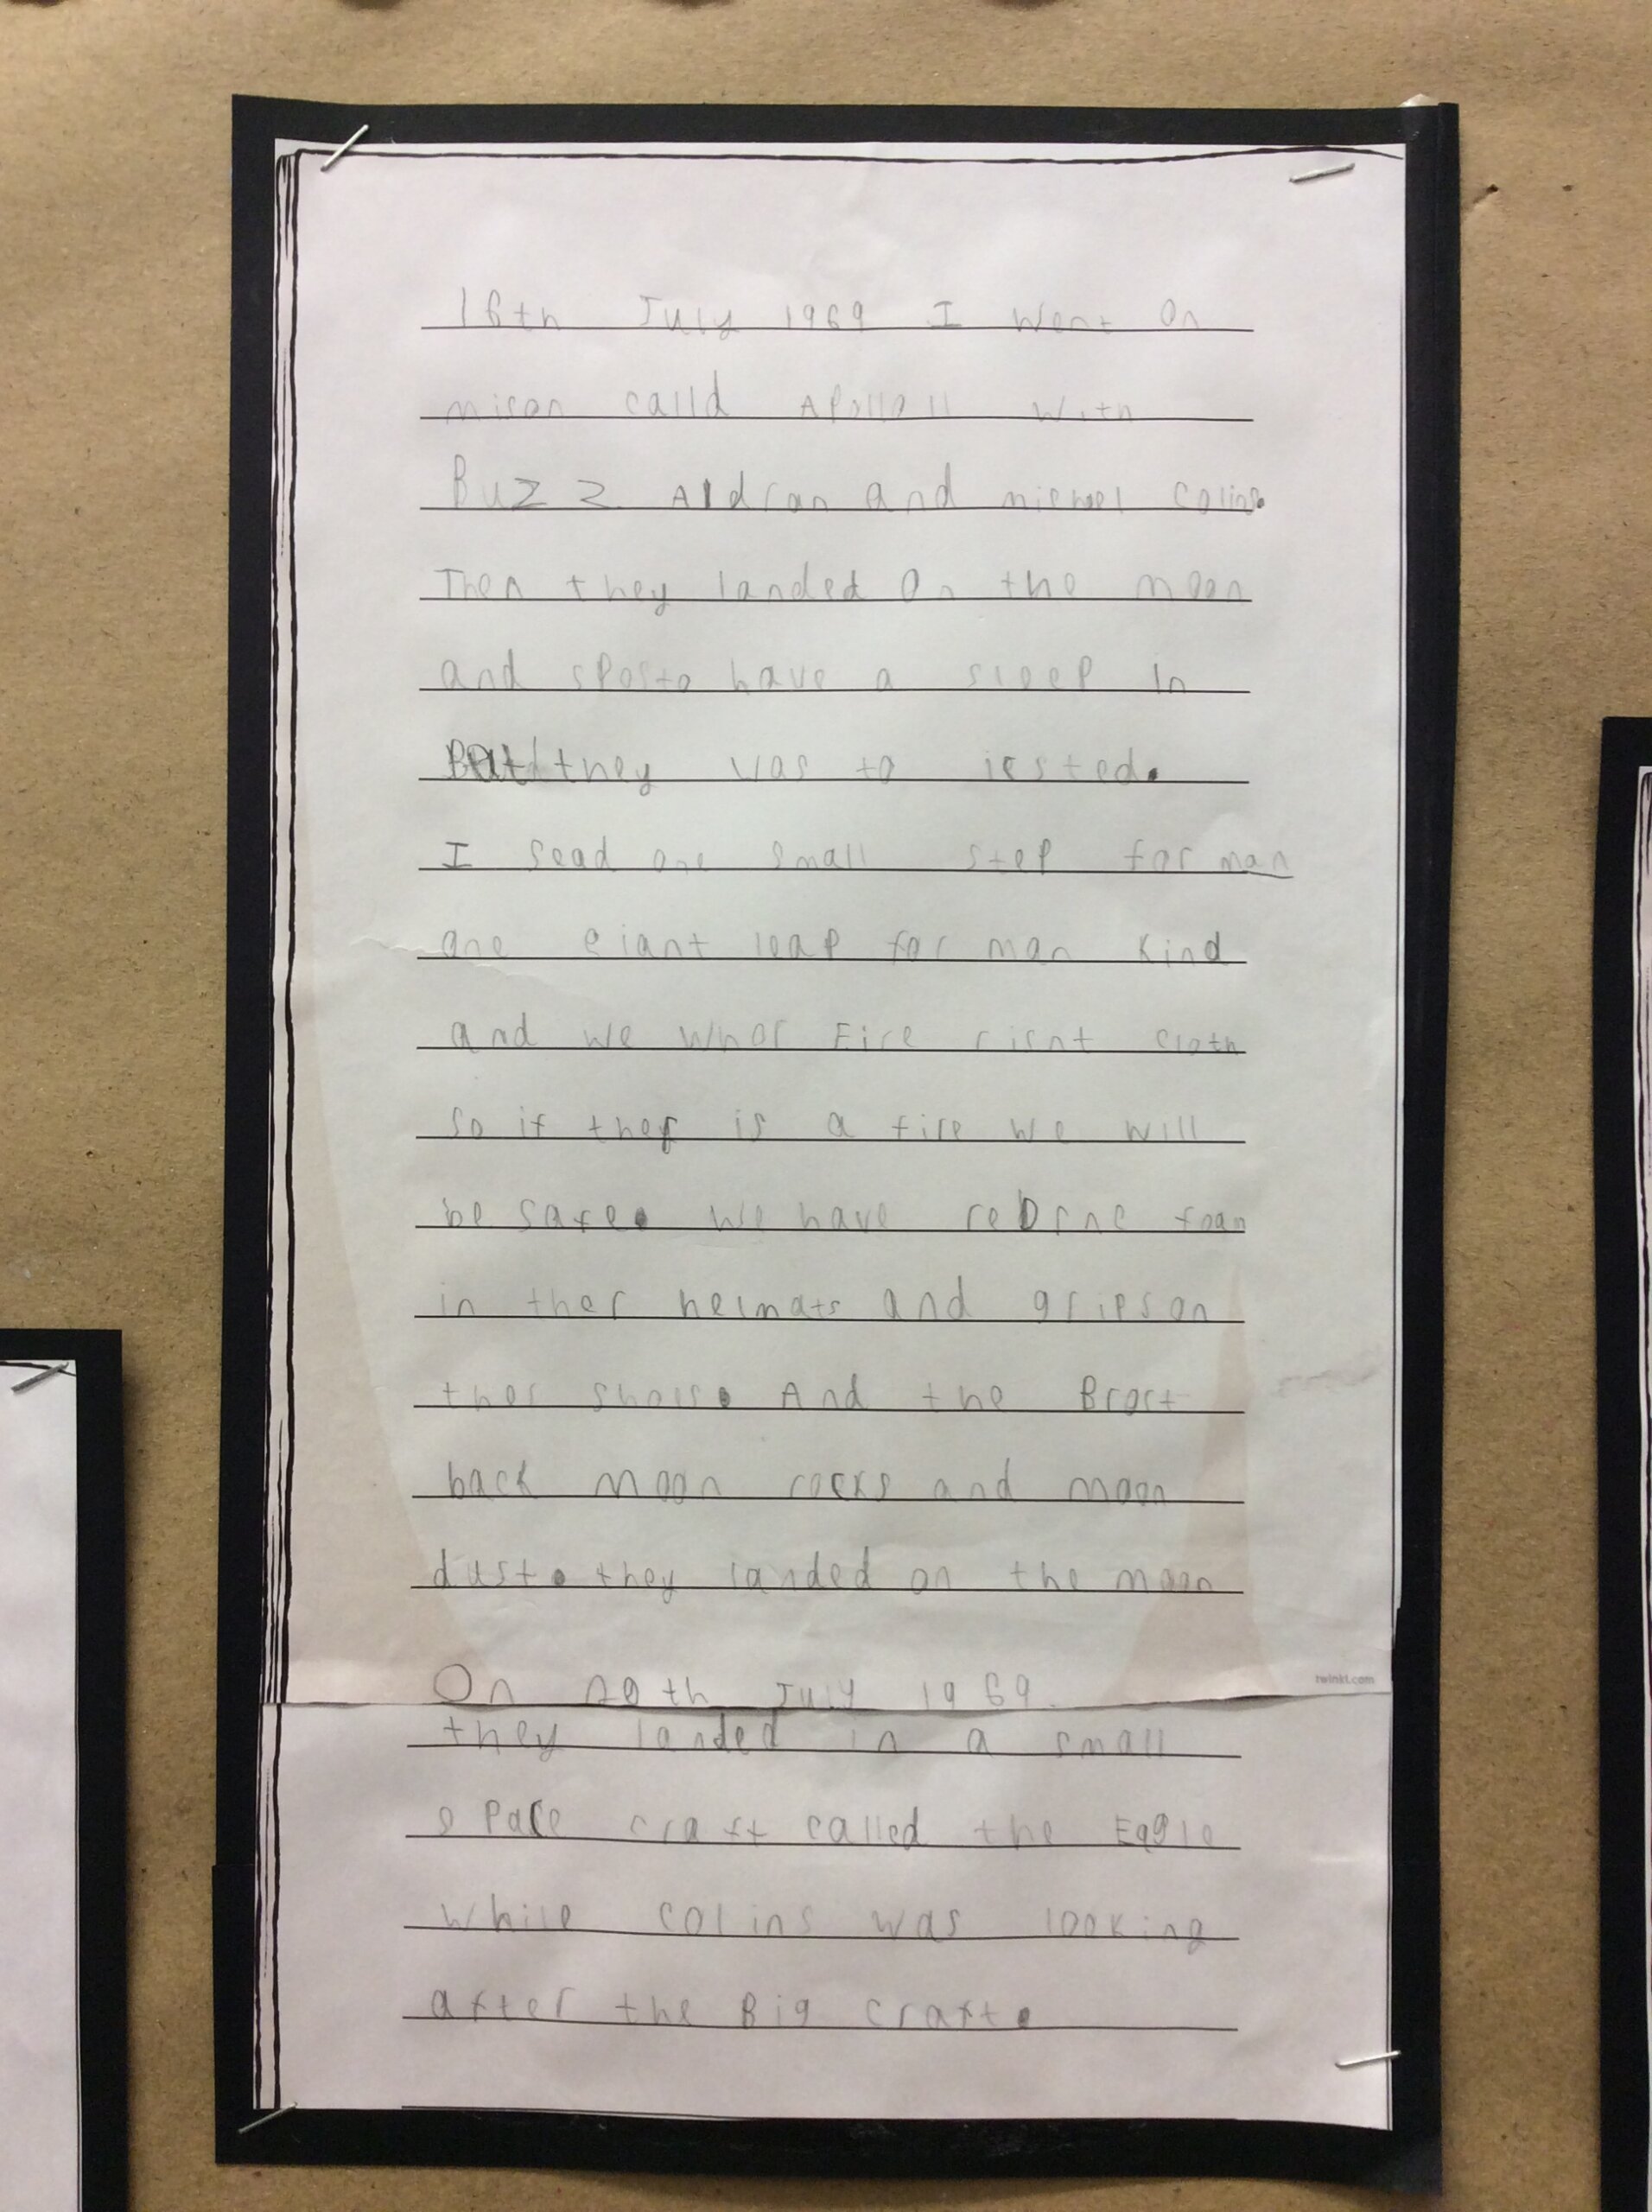 16th July 1969 I went on
mison calld Apollo 11 with
Buzz Aldran and michael Colins.
Then they landed on the moon
and sposto have a sleep in
But they was to
I sead one small step for man
one giant leap for man kind
and we whor Fire risnt cloth
so if ther is a fire we will
be safe. we have foam
in ther helmats and grips on
ther And the Brort
back moon rocks and moon
dust. they landed on the moon
On 20th July 1969.
twinkl.com
they landed in a small
space craft called the Eagle
while colins was looking
after the Big craft.